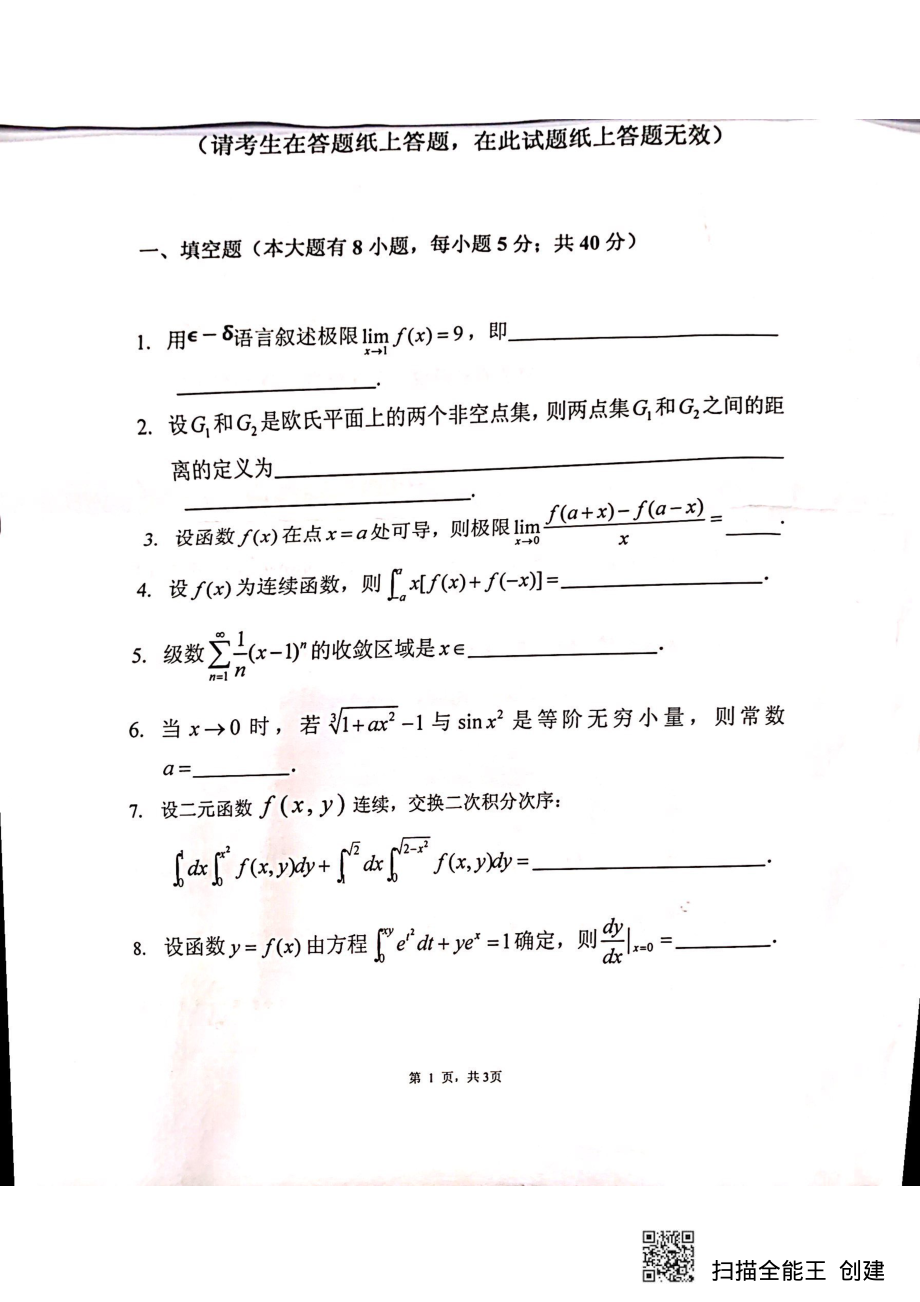 （请考生在答题纸上答题，在此试题纸上答题无效）
一、填空题（本大题有 8 小题，每小题 5 分；共 40 分）
1. 用ϵ－δ语言叙述极限 $\lim_{x \to 1} f(x) = 9$，即____________
____________.
2. 设$G_1$和$G_2$是欧氏平面上的两个非空点集，则两点集$G_1$和$G_2$之间的距
离的定义为____________
____________.
3. 设函数 $f(x)$ 在点 $x=a$ 处可导，则极限 $\lim_{x \to 0} \frac{f(a+x)-f(a-x)}{x} =$ ____.
4. 设 $f(x)$ 为连续函数，则 $\int_{-a}^{a} x[f(x)+f(-x)] =$____________.
5. 级数 $\sum_{n=1}^{\infty} \frac{1}{n}(x-1)^n$ 的收敛区域是 $x \in$____________.
6. 当 $x \to 0$ 时，若 $\sqrt[3]{1+ax^2}-1$ 与 $\sin x^2$ 是等阶无穷小量，则常数
$a=$________.
7. 设二元函数 $f(x,y)$ 连续，交换二次积分次序：
$\int_0^1 dx \int_0^{x^2} f(x,y)dy + \int_1^{\sqrt{2}} dx \int_0^{\sqrt{2-x^2}} f(x,y)dy =$____________.
8. 设函数 $y=f(x)$ 由方程 $\int_0^{xy} e^{t^2} dt + ye^x = 1$确定，则 $\frac{dy}{dx}|_{x=0} =$________.
第 1 页，共3页
扫描全能王 创建